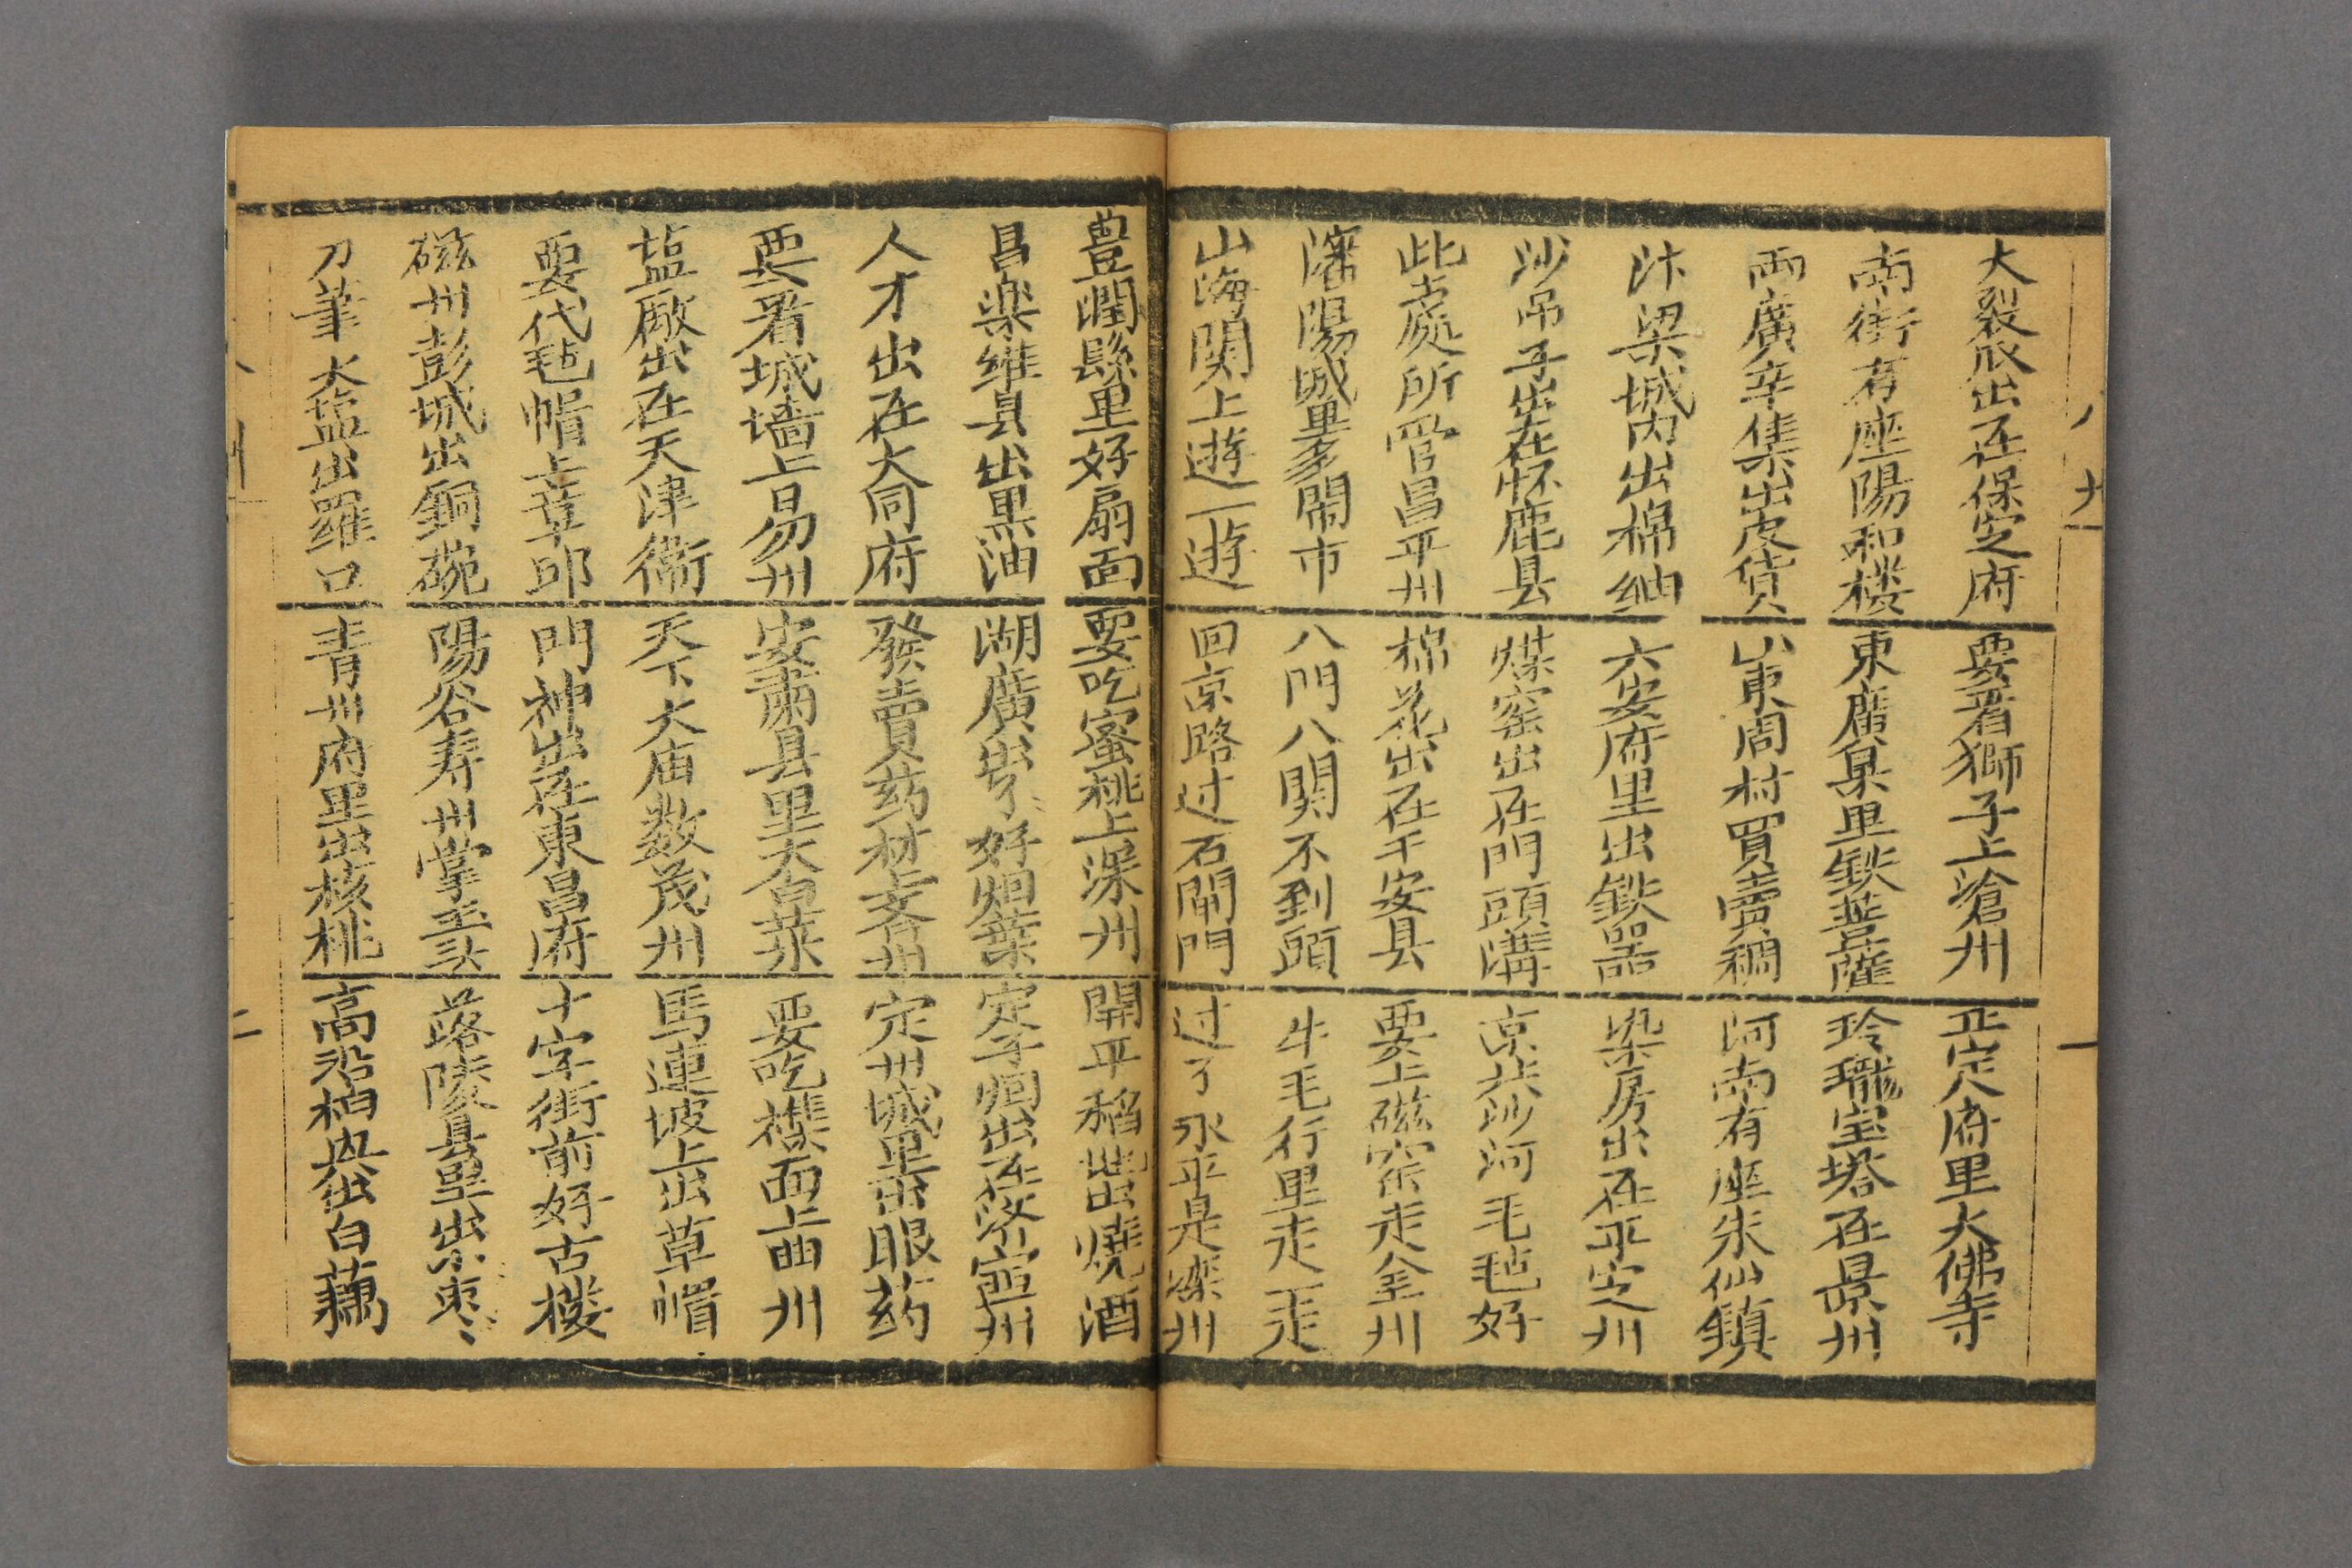 大裂瓜出在保定府 要看獅子上滄州 正定府里大佛寺
南街有座陽和楼 東廣臬里鉄菩薩 玲瓏宝塔在景州
両廣辛集出皮貨 山東周村買賣稠 河南有座朱仙鎮
汴梁城内出棉紬 六安府里出鉄器 染房出在平定州
沙吊子出在怀鹿县 煤窑出在門頭溝 京北沙河毛毡好
此处所管昌平州 棉花出在千安县 要上磁窑走全州
瀋陽城里多閙市 八門八関不到頭 牛毛行里走一走
山海関上遊一遊 回京路过石閘門 过了永平是灤州
豊潤縣里好扇面 要吃蜜桃上深州 開平稻地出燒酒
昌楽维县出黒油 湖廣出了好烟葉 定子烟出在汾州
人才出在大同府 發賣葯材去齐州 定州城里出眼葯
要看城墙上易州 安肃县里大白菜 要吃襍面上曲州
盐厰出在天津衛 天下大庙数茂州 馬連坡上出草帽
要代毡帽上章邱 門神出在東昌府 十字街前好古楼
磁州彭城出銅碗 陽谷寿州掌玉头 落陵县里出小枣
刀筆大盐出羅口 青州府里出核桃 高沿柏出出白藕